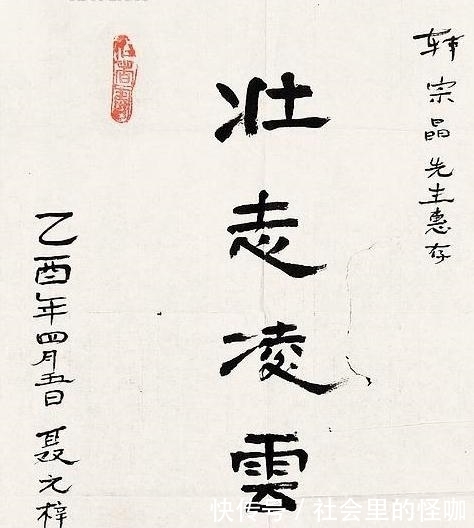 韩宗晶先生惠存
壮志凌雲
乙酉年四月五日 聂元梓
快传号/社会里的怪咖